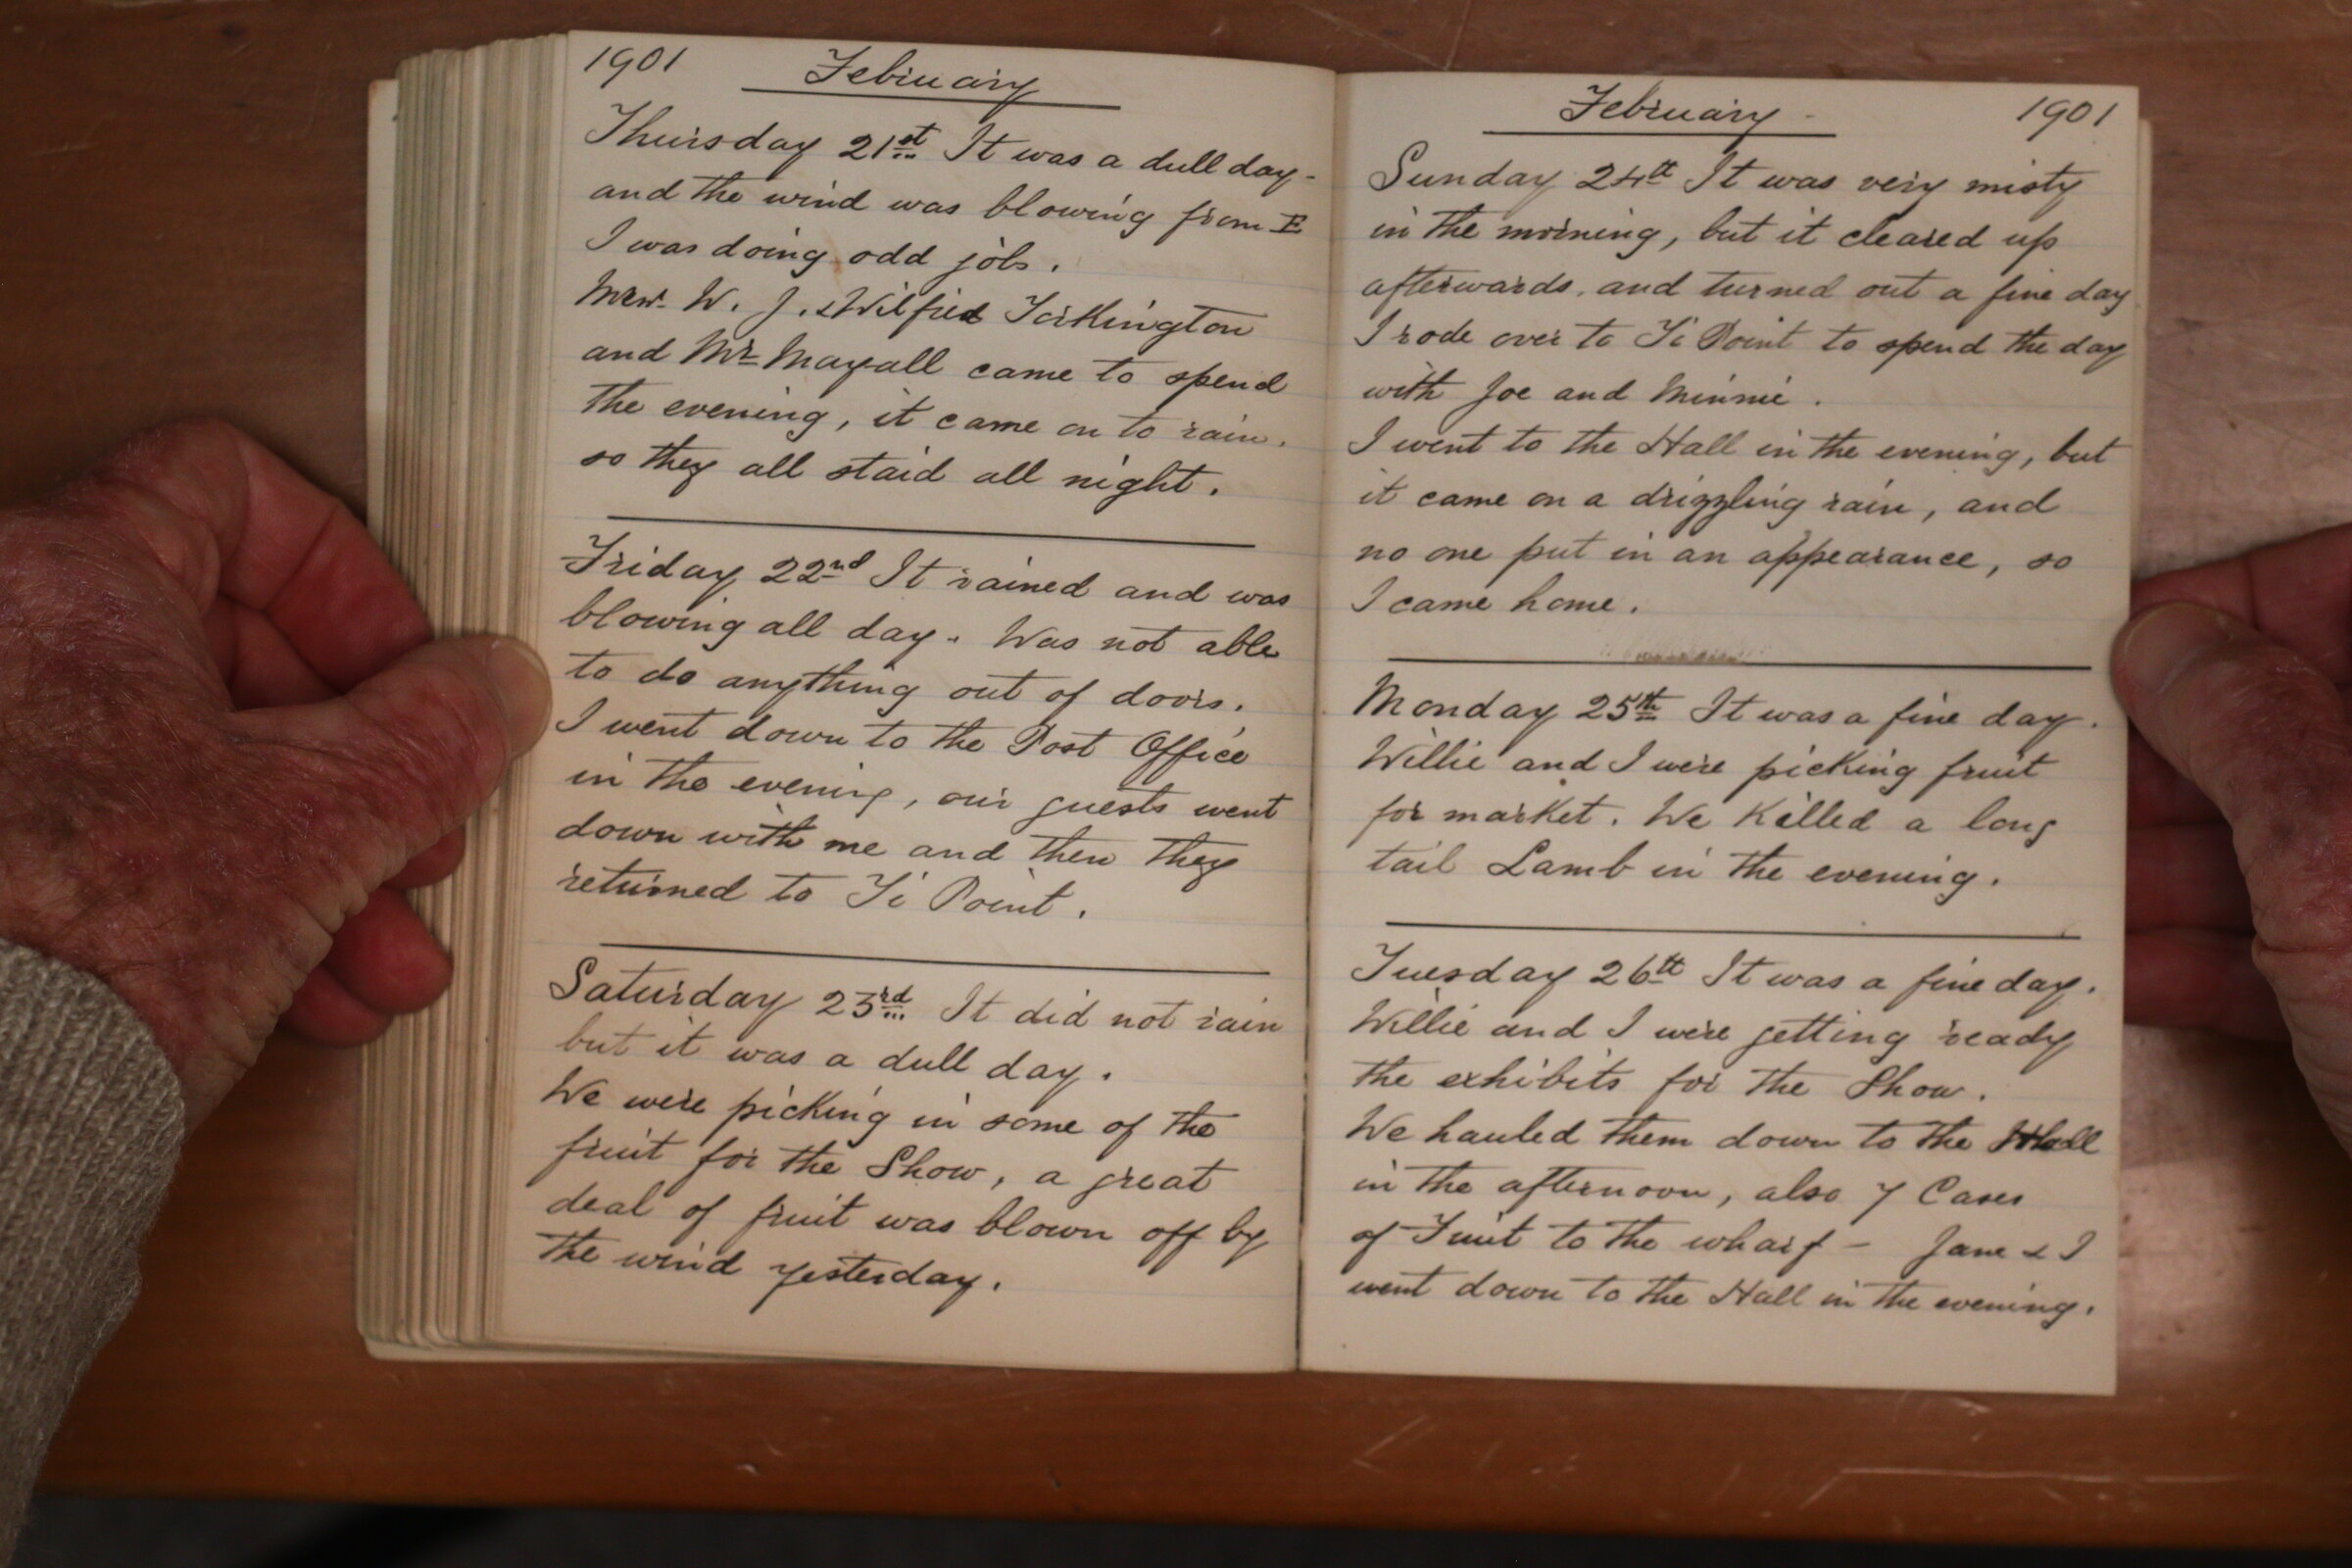 1901 February
Thursday 21st It was a dull day -
and the wind was blowing from E
I was doing odd jobs.
W. J. & Wilfred Torkington
and Mr Mayall came to spend
the evening, it came on to rain.
so they all staid all night.
Friday 22nd It rained and was
blowing all day. Was not able
to do anything out of doors.
I went down to the Post Office
in the evening, our guests went
down with me and then they
returned to Ti Point.
Saturday 23rd It did not rain
but it was a dull day.
We were picking in some of the
fruit for the Show, a great
deal of fruit was blown off by
the wind yesterday.
February - 1901
Sunday 24th It was very misty
in the morning, but it cleared up
afterwards, and turned out a fine day
I rode over to Ti Point to spend the day
with Joe and Minnie.
I went to the Hall in the evening, but
it came on a drizzling rain, and
no one put in an appearance, so
I came home.
Monday 25th It was a fine day.
Willie and I were picking fruit
for market. We Killed a long
tail Lamb in the evening.
Tuesday 26th It was a fine day.
Willie and I were getting ready
the exhibits for the Show.
We hauled them down to the Hall
in the afternoon, also 7 Cases
of Fruit to the wharf - Jane & I
went down to the Hall in the evening.